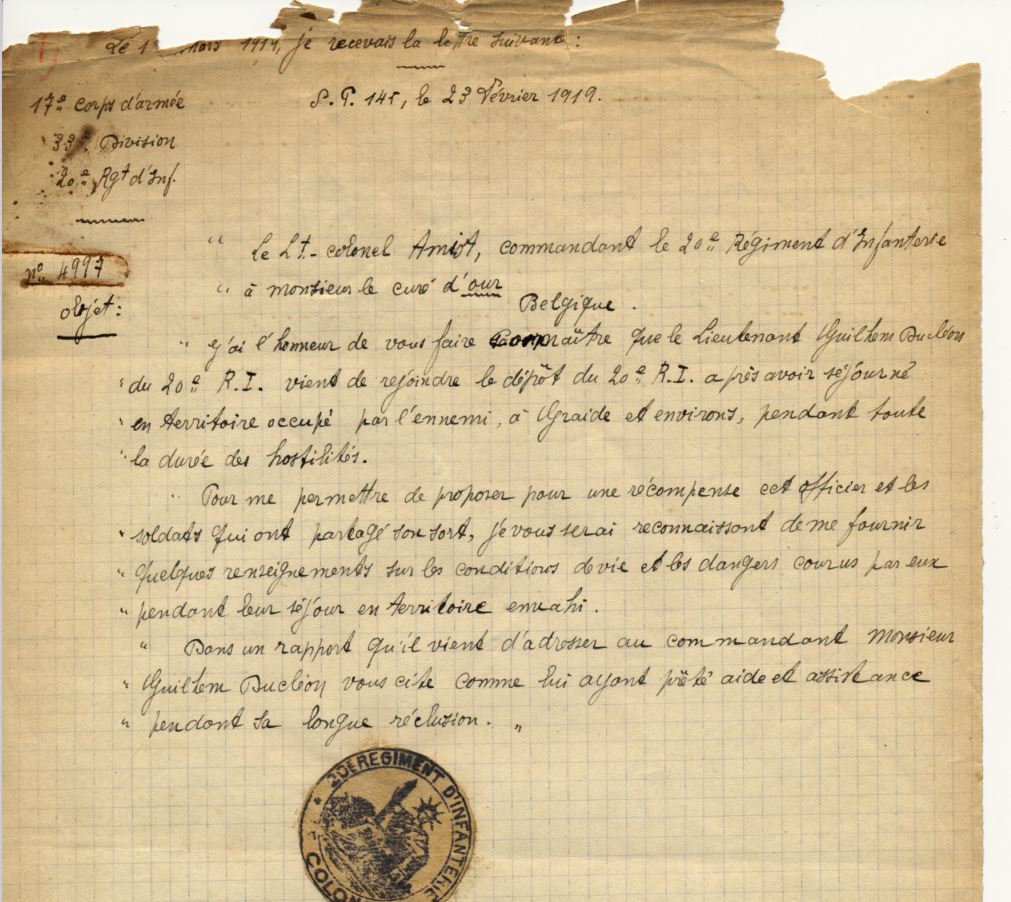 Le 1 mars 1919, je recevais la lettre suivante :
17e Corps d'armée
S. P. 145, le 23 Février 1919.
33e Division
20e Rgt d'Inf.
no 4997
objet :
" Le Lt-colonel Amist, commandant le 20e Régiment d'Infanterie
" à monsieur le curé d'our
Belgique.
" J'ai l'honneur de vous faire connaître que le Lieutenant Guilhem Ducléon
" du 20e R.I. vient de rejoindre le dépôt du 20e R.I. après avoir séjourné
" en territoire occupé par l'ennemi, à Graide et environs, pendant toute
" la durée des hostilités.
" Pour me permettre de proposer pour une récompense cet officier et les
" soldats qui ont partagé son sort, je vous serai reconnaissant de me fournir
" quelques renseignements sur les conditions de vie et les dangers courus par eux
" pendant leur séjour en territoire envahi.
" Dans un rapport qu'il vient d'adresser au commandant Monsieur
" Guilhem Ducléon vous cite comme lui ayant prêté aide et assistance
" pendant sa longue réclusion. "
20E REGIMENT D'INFANTERIE